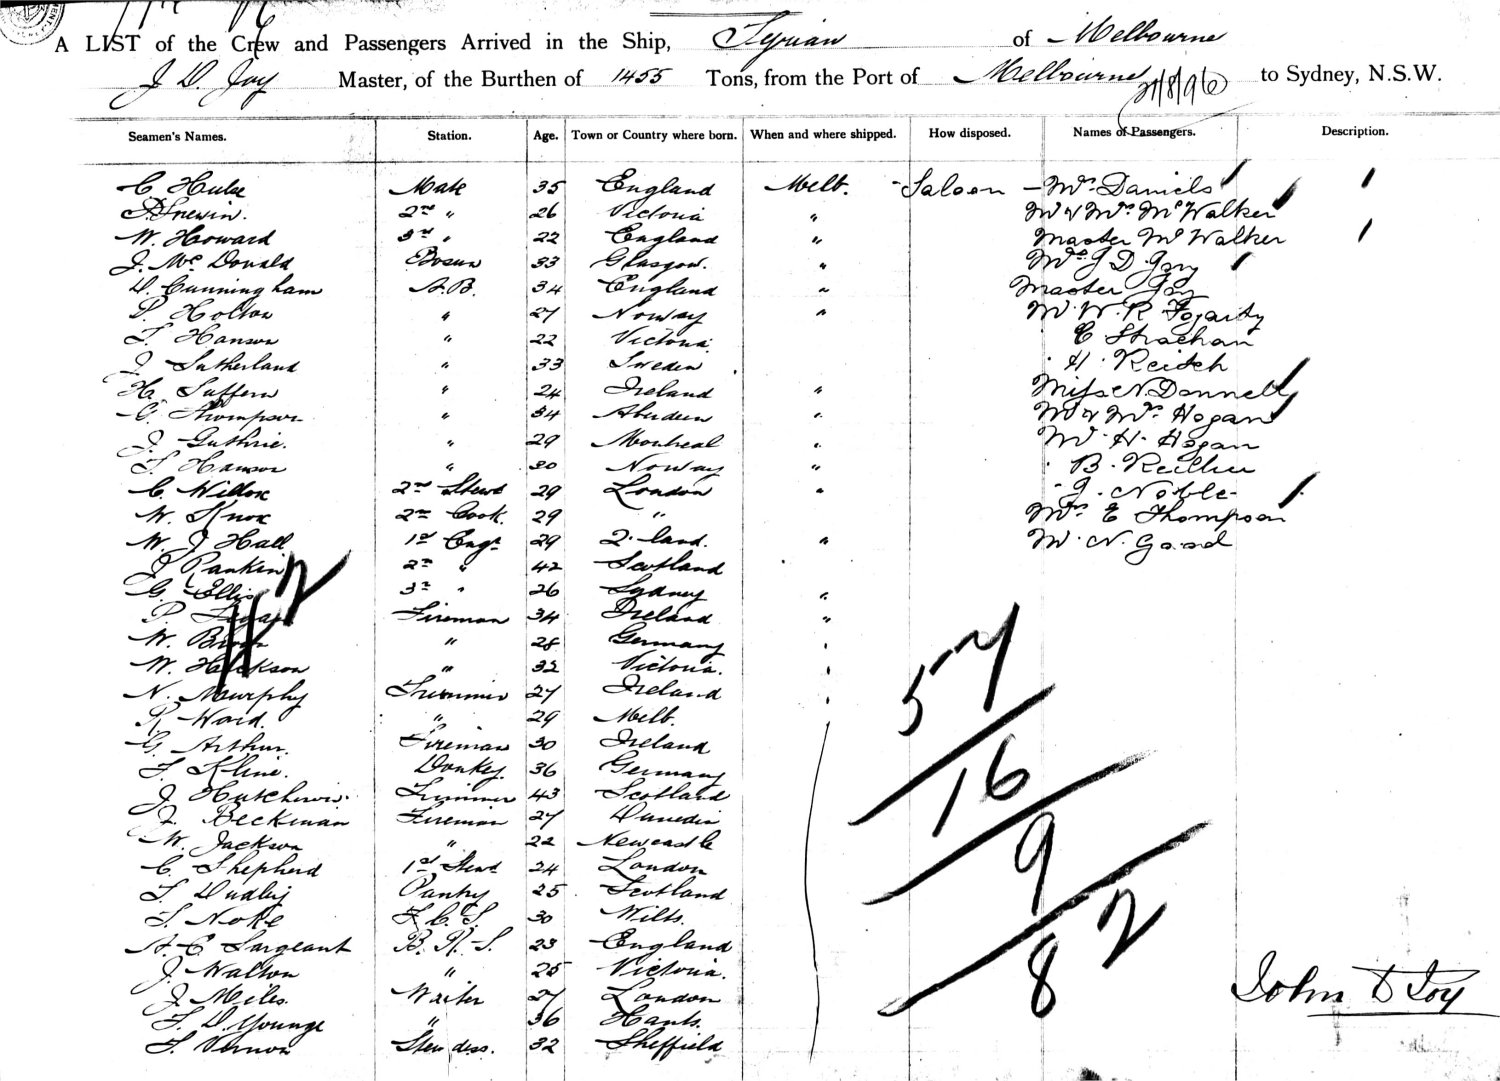 A LIST of the Crew and Passengers Arrived in the Ship, Tyrian of Melbourne
J D. Joy Master, of the Burthen of 1455 Tons, from the Port of Melbourne 21/8/96 to Sydney, N.S.W.
Seamen's Names. Station. Age. Town or Country where born. When and where shipped. How disposed. Names of Passengers. Description.
C Hulse Mate 35 England Melb. Saloon - Mrs Daniels
2nd " 26 Victoria " Mr & Mrs McWalker
W. Howard 3rd " 22 England " Master McWalker
J. McDonald Bosun 33 Glasgow. " Mrs J D Joy
D. Cunningham A.B. 34 England " Master Joy
P. Holton " 27 Norway " Mr W. R. Fogarty
T. Hanson " 22 Victoria. C Strachan
J Sutherland " 33 Sweden " H. Reitsh
H. Suffern " 24 Ireland " Miss N. Donnelly
G. Thompson " 34 Aberdeen " Mr & Mrs Hogan
J. Guthrie. " 29 Montreal " Mr H. Hogan
T. Hanson " 30 Norway " " B.
C. Willox 2nd Stewd 29 London " " J. Noble
W. Knox 2nd Cook. 29 " Mrs E Thompson
W. J Hall 1st Engr 29 Q.land. " Mr N. Good
J Rankin 2nd " 42 Scotland
G. Ellis 3rd " 26 Sydney "
P. Fireman 34 Ireland "
W. Brown " 28 Germany "
W. Hickson " 32 Victoria. "
N. Murphy Trimmer 27 Ireland "
R Ward. " 29 Melb. "
G. Arthur. Fireman 30 Ireland
F. Kline. Donkey 36 Germany
J. Hutcheson Trimmer 43 Scotland
J. Beckman Fireman 27 Dunedin
W. Jackson " 22 Newcastle
C. Shepherd 1st Stewd 24 London
T. Dudley Pantry 25 Scotland
T. Noke F.C.S. 30 Wilts.
A. C Sargeant B. R. S. 23 England
J. Walton " 25 Victoria.
J. Miles. Waiter 27 London
F. D. Younge " 36 Hants.
F. Vernon Stewdess. 32 Sheffield
112
57
16
9
82
John D Joy